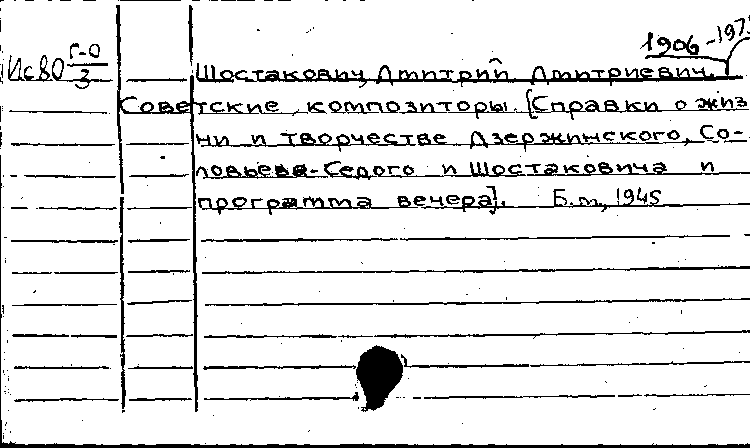 1906-197
Ис80 Г-0/3 Шостакович, Дмитрий Дмитриевич.
Советские композиторы. [Справки о жиз
ни и творчестве Дзержинского, Со-
ловьева-Седого и Шостаковича и
программа вечера]. Б.м., 1945